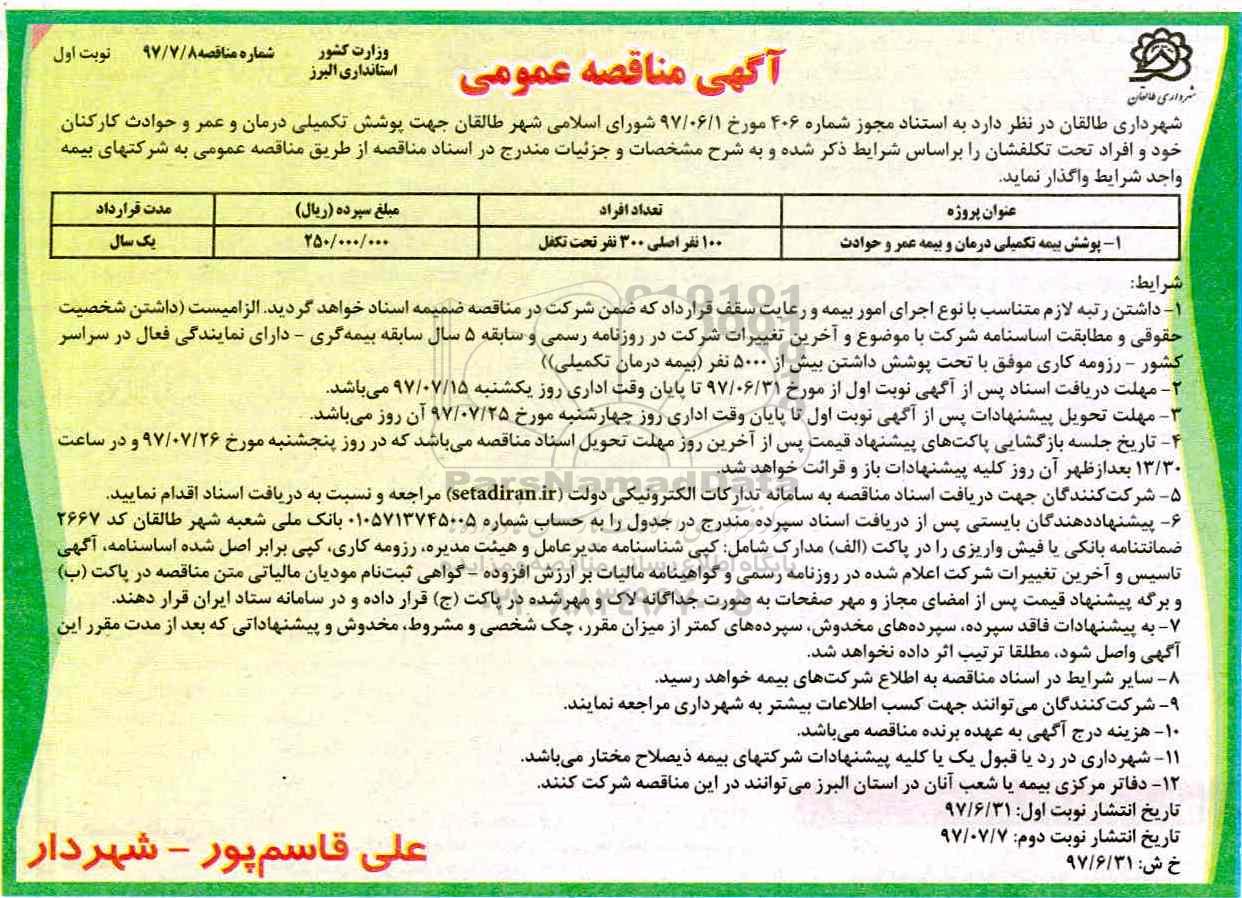 شهرداری طالقان
آگهی مناقصه عمومی
وزارت کشور
استانداری البرز
شماره مناقصه ۹۷/۷/۸
نوبت اول
شهرداری طالقان در نظر دارد به استناد مجوز شماره ۴۰۶ مورخ ۹۷/۰۶/۱ شورای اسلامی شهر طالقان جهت پوشش تکمیلی درمان و عمر و حوادث کارکنان
خود و افراد تحت تکلفشان را براساس شرایط ذکر شده و به شرح مشخصات و جزئیات مندرج در اسناد مناقصه از طریق مناقصه عمومی به شرکتهای بیمه
واجد شرایط واگذار نماید.
عنوان پروژه تعداد افراد مبلغ سپرده (ریال) مدت قرارداد
۱- پوشش بیمه تکمیلی درمان و بیمه عمر و حوادث ۱۰۰ نفر اصلی ۳۰۰ نفر تحت تکفل ۲۵۰/۰۰۰/۰۰۰ یک سال
شرایط:
۱- داشتن رتبه لازم متناسب با نوع اجرای امور بیمه و رعایت سقف قرارداد که ضمن شرکت در مناقصه ضمیمه اسناد خواهد گردید. الزامیست (داشتن شخصیت
حقوقی و مطابقت اساسنامه شرکت با موضوع و آخرین تغییرات شرکت در روزنامه رسمی و سابقه ۵ سال سابقه بیمه‌گری - دارای نمایندگی فعال در سراسر
کشور - رزومه کاری موفق با تحت پوشش داشتن بیش از ۵۰۰۰ نفر (بیمه درمان تکمیلی))
۲- مهلت دریافت اسناد پس از آگهی نوبت اول از مورخ ۹۷/۰۶/۳۱ تا پایان وقت اداری روز یکشنبه ۹۷/۰۷/۱۵ می‌باشد.
۳- مهلت تحویل پیشنهادات پس از آگهی نوبت اول تا پایان وقت اداری روز چهارشنبه مورخ ۹۷/۰۷/۲۵ آن روز می‌باشد.
۴- تاریخ جلسه بازگشایی پاکت‌های پیشنهاد قیمت پس از آخرین روز مهلت تحویل اسناد مناقصه می‌باشد که در روز پنجشنبه مورخ ۹۷/۰۷/۲۶ و در ساعت
۱۳/۳۰ بعدازظهر آن روز کلیه پیشنهادات باز و قرائت خواهد شد.
ParsNamadData
۵- شرکت‌کنندگان جهت دریافت اسناد مناقصه به سامانه تدارکات الکترونیکی دولت (setadiran.ir) مراجعه و نسبت به دریافت اسناد اقدام نمایید.
۶- پیشنهاددهندگان بایستی پس از دریافت اسناد سپرده مندرج در جدول را به حساب شماره ۰۱۰۵۷۱۳۷۴۵۰۰۵ بانک ملی شعبه شهر طالقان کد ۲۶۶۷
ضمانتنامه بانکی یا فیش واریزی را در پاکت (الف) مدارک شامل: کپی شناسنامه مدیرعامل و هیئت مدیره، رزومه کاری، کپی برابر اصل شده اساسنامه، آگهی
تاسیس و آخرین تغییرات شرکت اعلام شده در روزنامه رسمی و گواهینامه مالیات بر ارزش افزوده - گواهی ثبت‌نام مودیان مالیاتی متن مناقصه در پاکت (ب)
و برگه پیشنهاد قیمت پس از امضای مجاز و مهر صفحات به صورت جداگانه لاک و مهرشده در پاکت (ج) قرار داده و در سامانه ستاد ایران قرار دهند.
۷- به پیشنهادات فاقد سپرده، سپرده‌های مخدوش، سپرده‌های کمتر از میزان مقرر، چک شخصی و مشروط، مخدوش و پیشنهاداتی که بعد از مدت مقرر این
آگهی واصل شود، مطلقا ترتیب اثر داده نخواهد شد.
۸- سایر شرایط در اسناد مناقصه به اطلاع شرکت‌های بیمه خواهد رسید.
۹- شرکت‌کنندگان می‌توانند جهت کسب اطلاعات بیشتر به شهرداری مراجعه نمایند.
۱۰- هزینه درج آگهی به عهده برنده مناقصه می‌باشد.
۱۱- شهرداری در رد یا قبول یک یا کلیه پیشنهادات شرکتهای بیمه ذیصلاح مختار می‌باشد.
۱۲- دفاتر مرکزی بیمه یا شعب آنان در استان البرز می‌توانند در این مناقصه شرکت کنند.
تاریخ انتشار نوبت اول: ۹۷/۶/۳۱
تاریخ انتشار نوبت دوم: ۹۷/۰۷/۷
خ ش: ۹۷/۶/۳۱
علی قاسم‌پور - شهردار